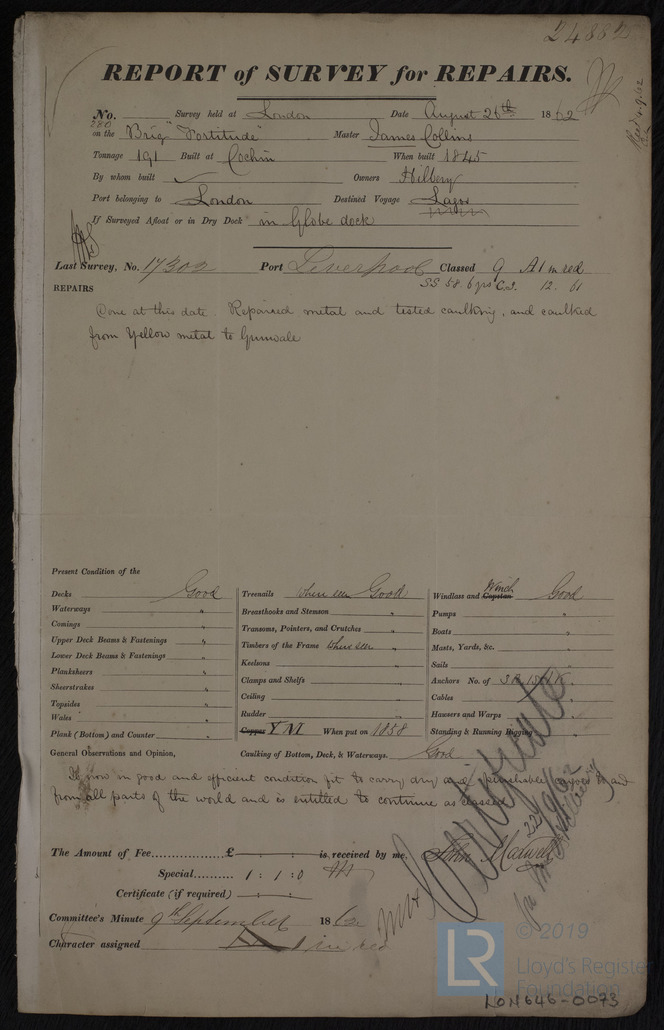 24882
REPORT of SURVEY for REPAIRS.
Recd 4.9.62
No. 280 Survey held at London Date August 26th 1862
on the Brig "Fortitude" Master James Collins
Tonnage 191 Built at Cochin When built 1845
By whom built Owners Hilbery
Port belonging to London Destined Voyage Lagos
If Surveyed Afloat or in Dry Dock in Globe dock
Last Survey, No. 17302 Port Liverpool Classed 9 A1 in red
SS 58 6 yrs C.S. 12. 61
REPAIRS
Done at this date. Repaired metal and tested caulking, and caulked
from Yellow metal to Gunwale
Present Condition of the
Decks Good
Waterways "
Comings "
Upper Deck Beams & Fastenings "
Lower Deck Beams & Fastenings "
Planksheers "
Sheerstrakes "
Topsides "
Wales "
Plank (Bottom) and Counter "
Treenails where seen Good
Breasthooks and Stemson "
Transoms, Pointers, and Crutches "
Timbers of the Frame where seen "
Keelsons "
Clamps and Shelfs "
Ceiling "
Rudder "
Copper YM When put on 1858
Caulking of Bottom, Deck, & Waterways. Good
Windlass and Capstan Winch Good
Pumps "
Boats "
Masts, Yards, &c. "
Sails "
Anchors No. of
Cables "
Hawsers and Warps "
Standing & Running Rigging "
General Observations and Opinion,
Is now in good and efficient condition fit to carry dry and perishable cargoes to and
from all parts of the world and is entitled to continue as classed
Certificate
22/9/62
The Amount of Fee £ : : is received by me,
Special 1 : 1 : 0
Certificate (if required) : :
Committee's Minute 9th September 1862
Character assigned A 1 in red
© 2019
LR
Lloyd's Register
Foundation
LON646-0073